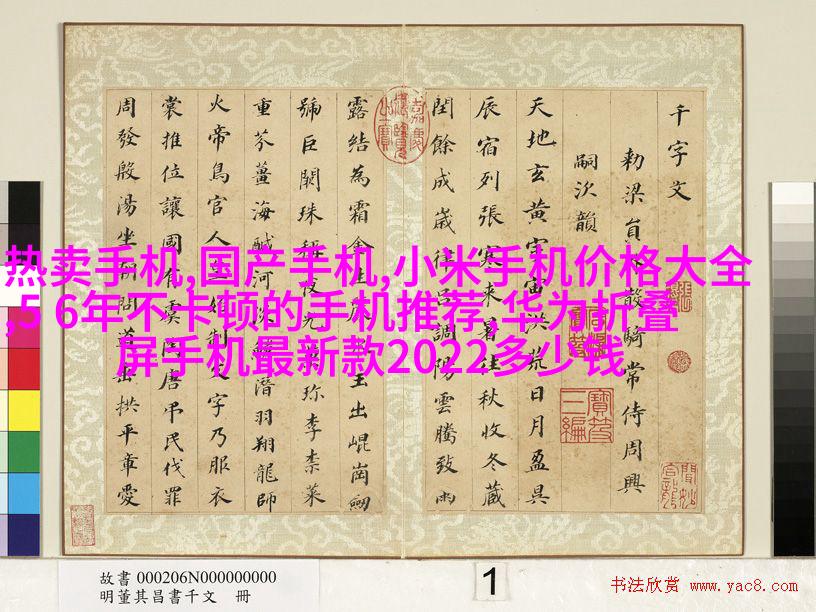 热卖手机,国产手机,小米手机价格大全
,5 6年不卡顿的手机推荐,华为折叠
屏手机最新款2022多少钱
千字文
勅梁員外散騎常侍周興
嗣次韻
天地玄黃宇宙洪荒日月盈昃
辰宿列張寒来暑往秋收冬蔵
閏餘成嵗律呂調陽雲騰致雨
露結為霜金生麗水玉出崐崗劒
號巨闕珠稱夜光菓珍李柰菜
重芥薑海醎河淡鱗潛羽翔龍師
火帝鳥官人皇始制文字乃服衣
裳推位讓國有虞陶唐弔民伐罪
周發殷湯坐朝問道垂拱平章愛
寶笈
三編
故書 000206N000000000
明董其昌書千文 冊
1
书法欣赏 www.yac8.com